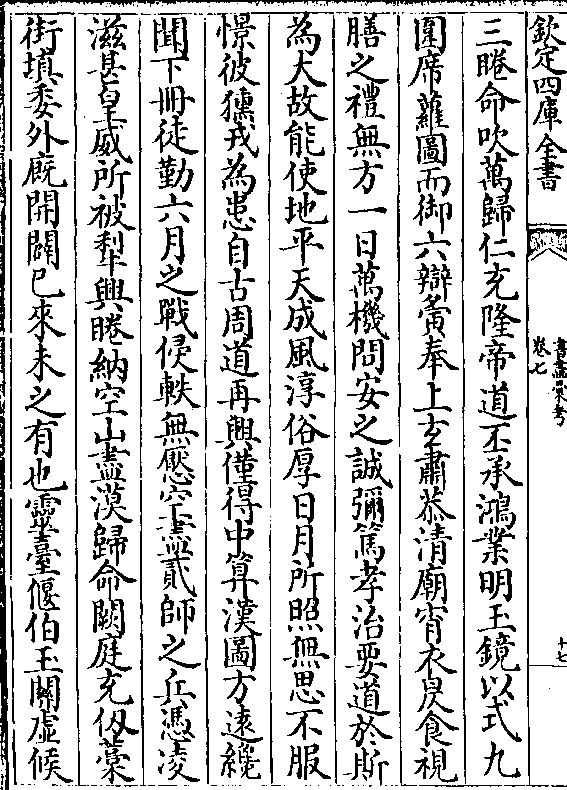 欽定四庫全書
書畫彙考
卷七
十七
三睠命吹萬歸仁充隆帝道丕承鴻業明玉鏡以式九
圍席蘿圖而御六辯夤奉上玄肅恭清廟宵衣昃食視
膳之禮無方一日萬機問安之誠彌篤孝治要道於斯
為大故能使地平天成風淳俗厚日月所照無思不服
憬彼獯戎為患自古周道再興僅得中算漢圖方遠纔
聞下冊徒勤六月之戰侵軼無厭空盡貳師之兵憑凌
滋甚皇威所被犁興睠納空山盡漠歸命闕庭充仞藁
街填委外廐開闢已來未之有也靈臺偃伯玉關虛候